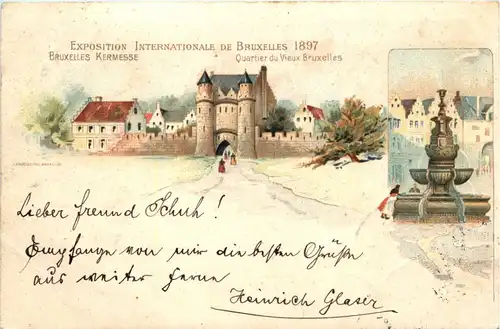 Exposition Internationale de Bruxelles 1897
Bruxelles Kermesse
Quartier du Vieux Bruxelles
Lieber freund Schuh!
Empfange von mir die besten Grüße
aus weiter ferne
Heinrich Glaser